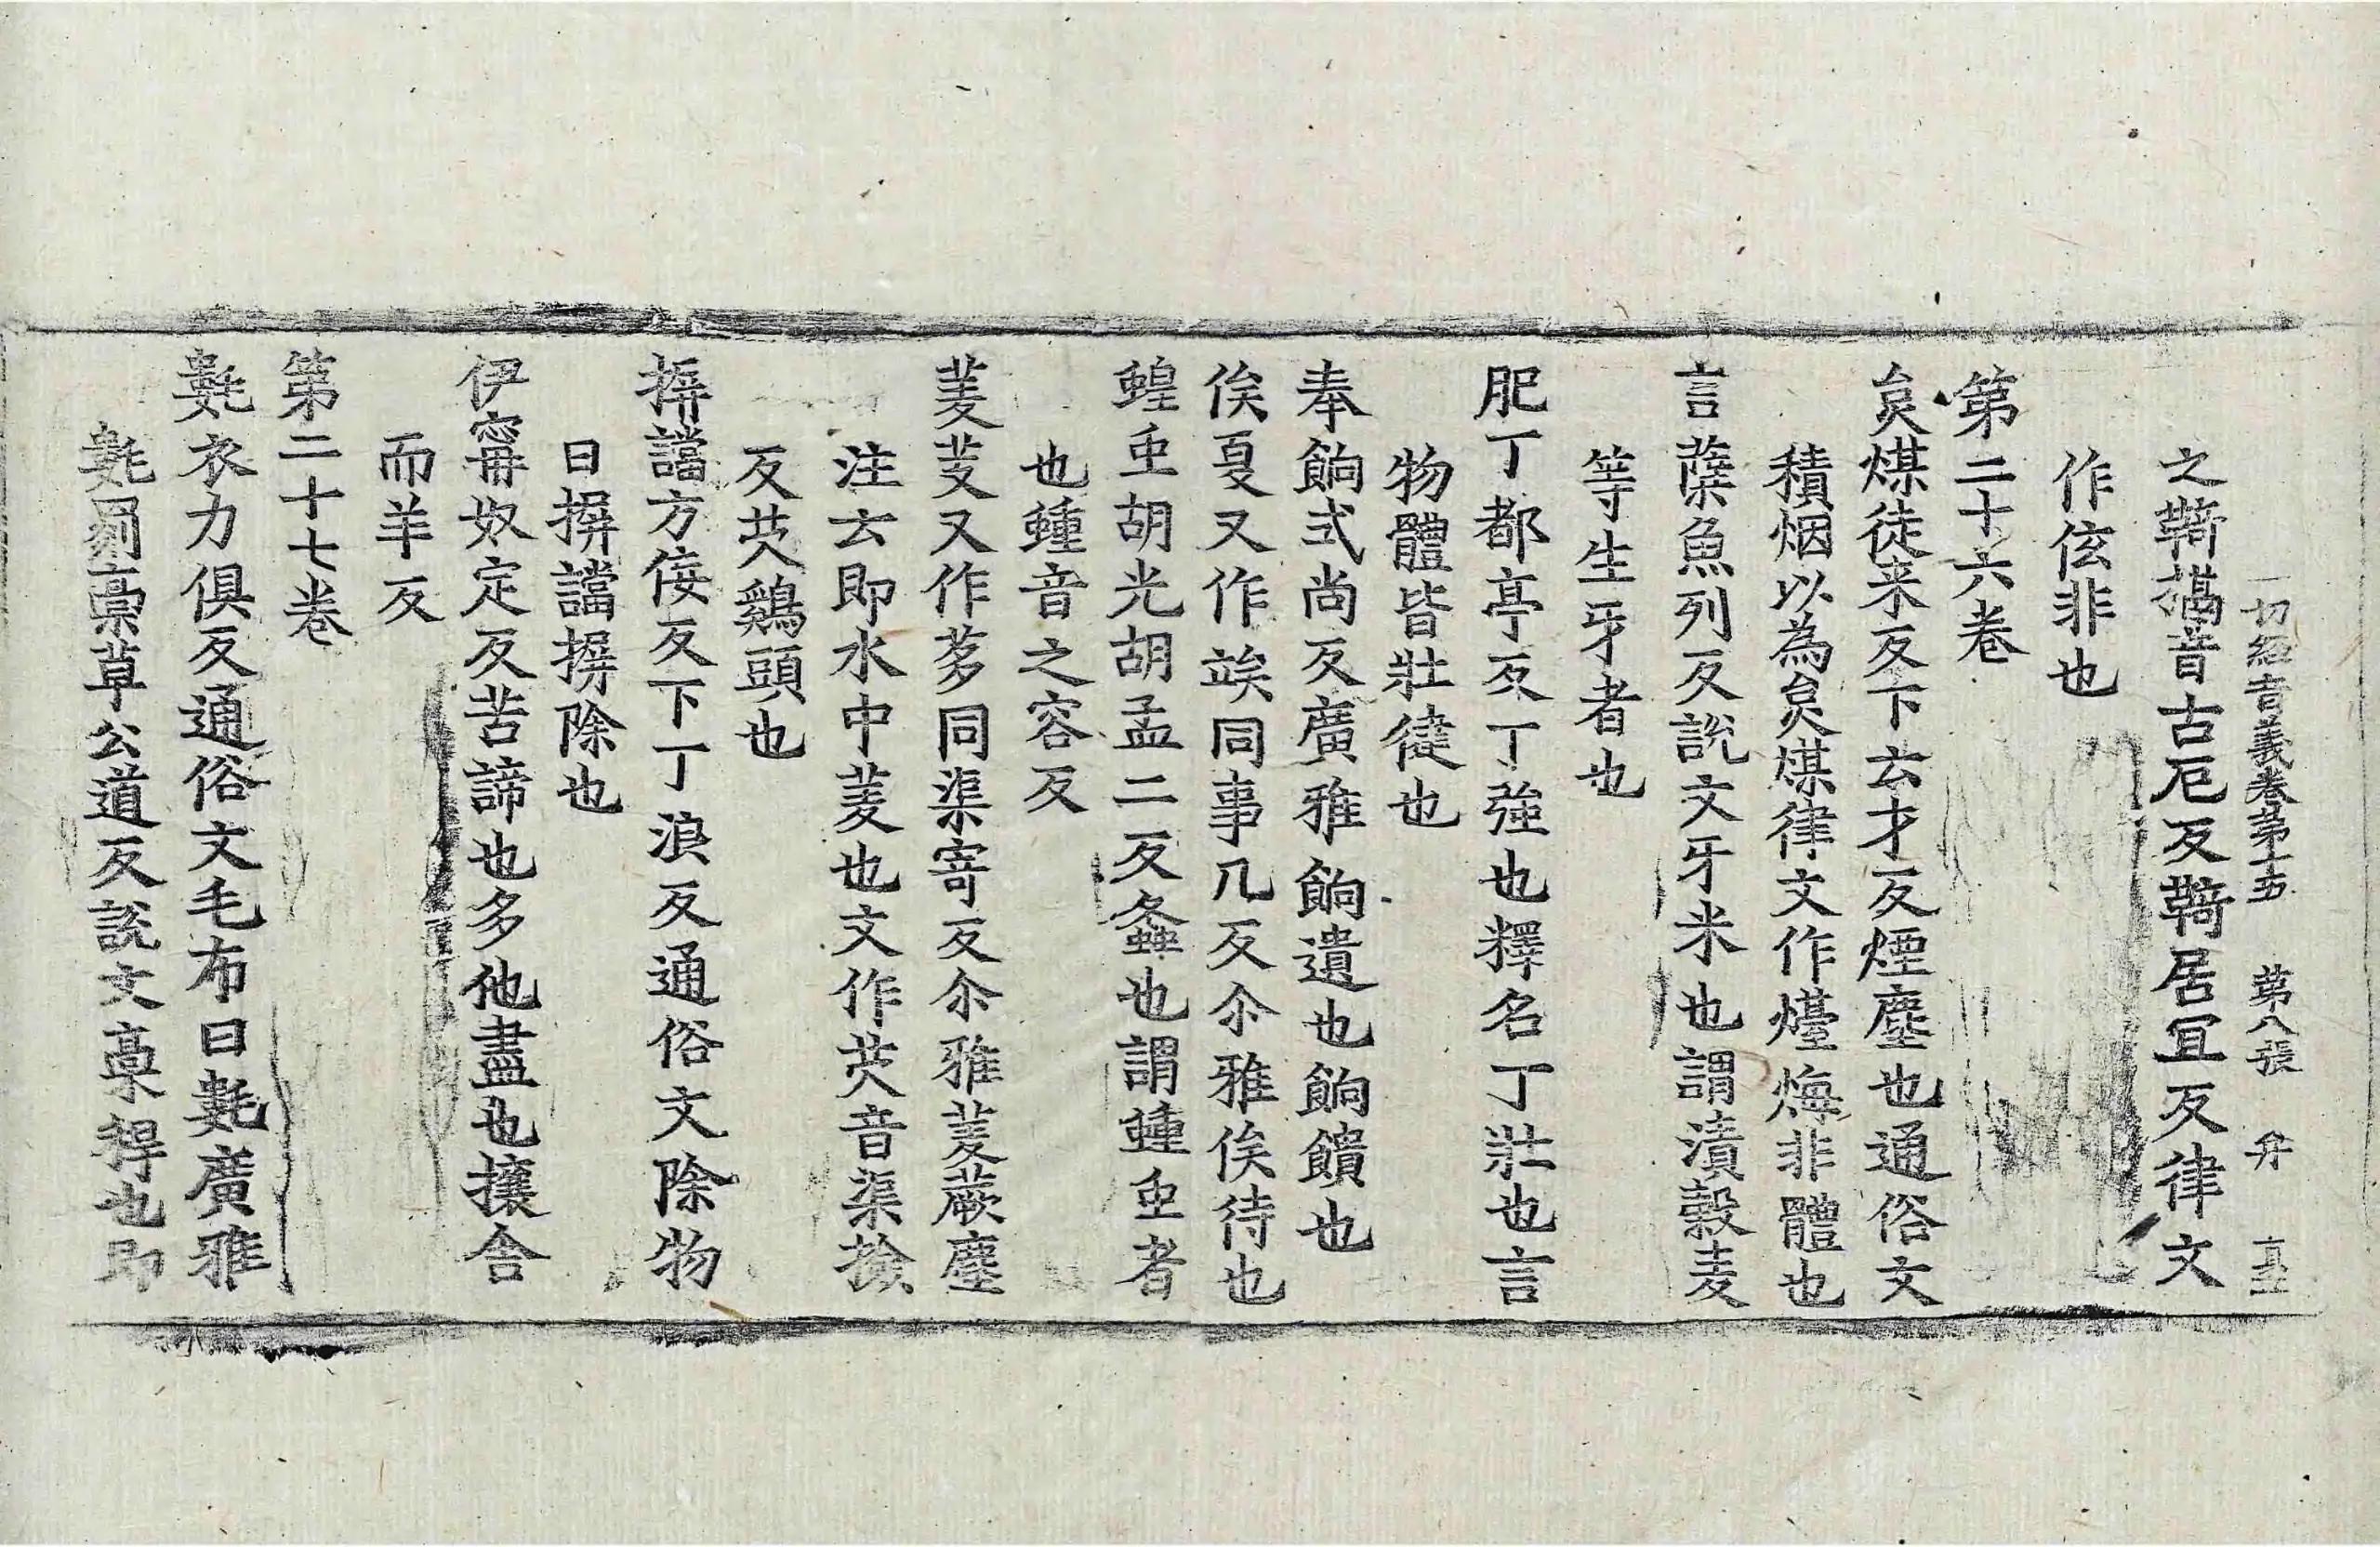 一切經音義卷第十五 第八張 弁
之鞯𢹂音古厄反鞯居宜反律文
作伭非也
第二十六卷
炱煤徒来反下云才反煙塵也通俗文
積烟以為炱煤律文作㷛烸非體也
言蘖魚列反説文牙米也謂漬穀麦
等生牙者也
肥丁都亭反丁強也釋名丁壯也言
物體皆壯徤也
奉餉式尚反廣雅餉遺也餉饋也
俟戛又作竢同事几反尒雅俟待也
蝗䖝胡光胡孟二反螽也謂蝩䖝者
也蝩音之容反
菱芰又作茤同渠寄反尒雅菱蕨攈
注云即水中菱也文作芡音渠撿
反芡鷄頭也
摒譡方侫反下丁浪反通俗文除物
曰摒譡摒除也
伊寗奴定反苦諦也多他盡也攘舍
而羊反
第二十七卷
氀衣力俱反通俗文毛布曰氀廣雅
氀罽稾草公道反説文稾稈也即